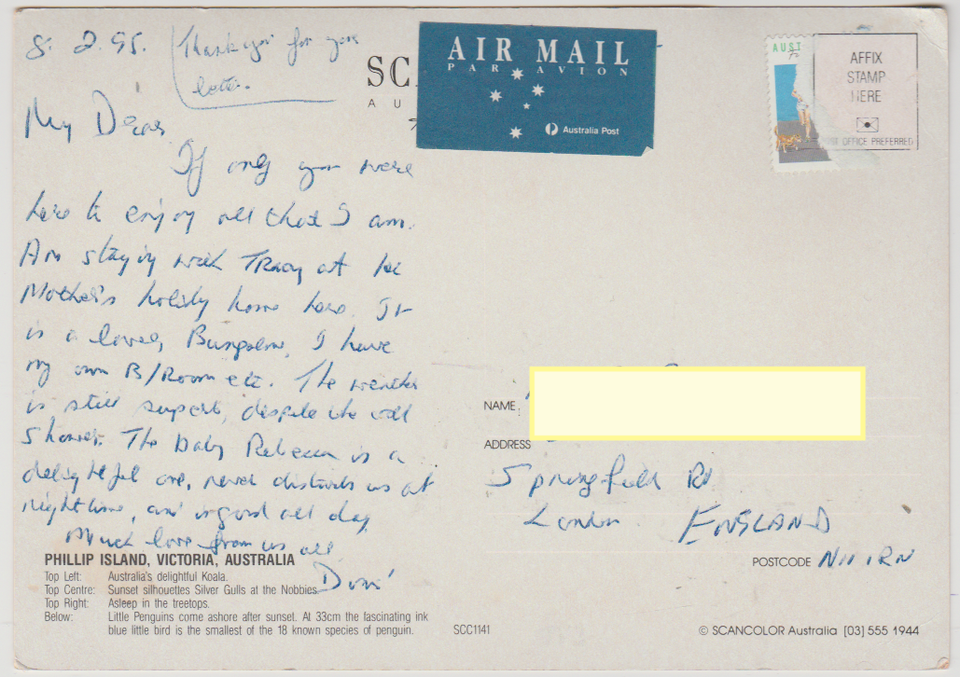 8. 2. 95.
Thank you for your
letter.
My Dears
If only you were
here to enjoy all that I am.
Am staying with Tracy at
Mother's holiday home here. It
is a lovely Bungalow, I have
my own B/Room etc. The weather
is still superb, despite the odd
shower. The baby Rebecca is a
delightful one, never disturbs us at
night time, and is good all day
Much love from us all
SC
AU
AIR MAIL
PAR AVION
Australia Post
AUST
AFFIX
STAMP
HERE
OFFICE PREFERRED
NAME
ADDRESS
Springfield Rd
London ENGLAND
POSTCODE N11 1RN
PHILLIP ISLAND, VICTORIA, AUSTRALIA
Top Left: Australia's delightful Koala.
Top Centre: Sunset silhouettes Silver Gulls at the Nobbies.
Top Right: Asleep in the treetops.
Below: Little Penguins come ashore after sunset. At 33cm the fascinating ink
blue little bird is the smallest of the 18 known species of penguin.
SCC1141
© SCANCOLOR Australia [03] 555 1944